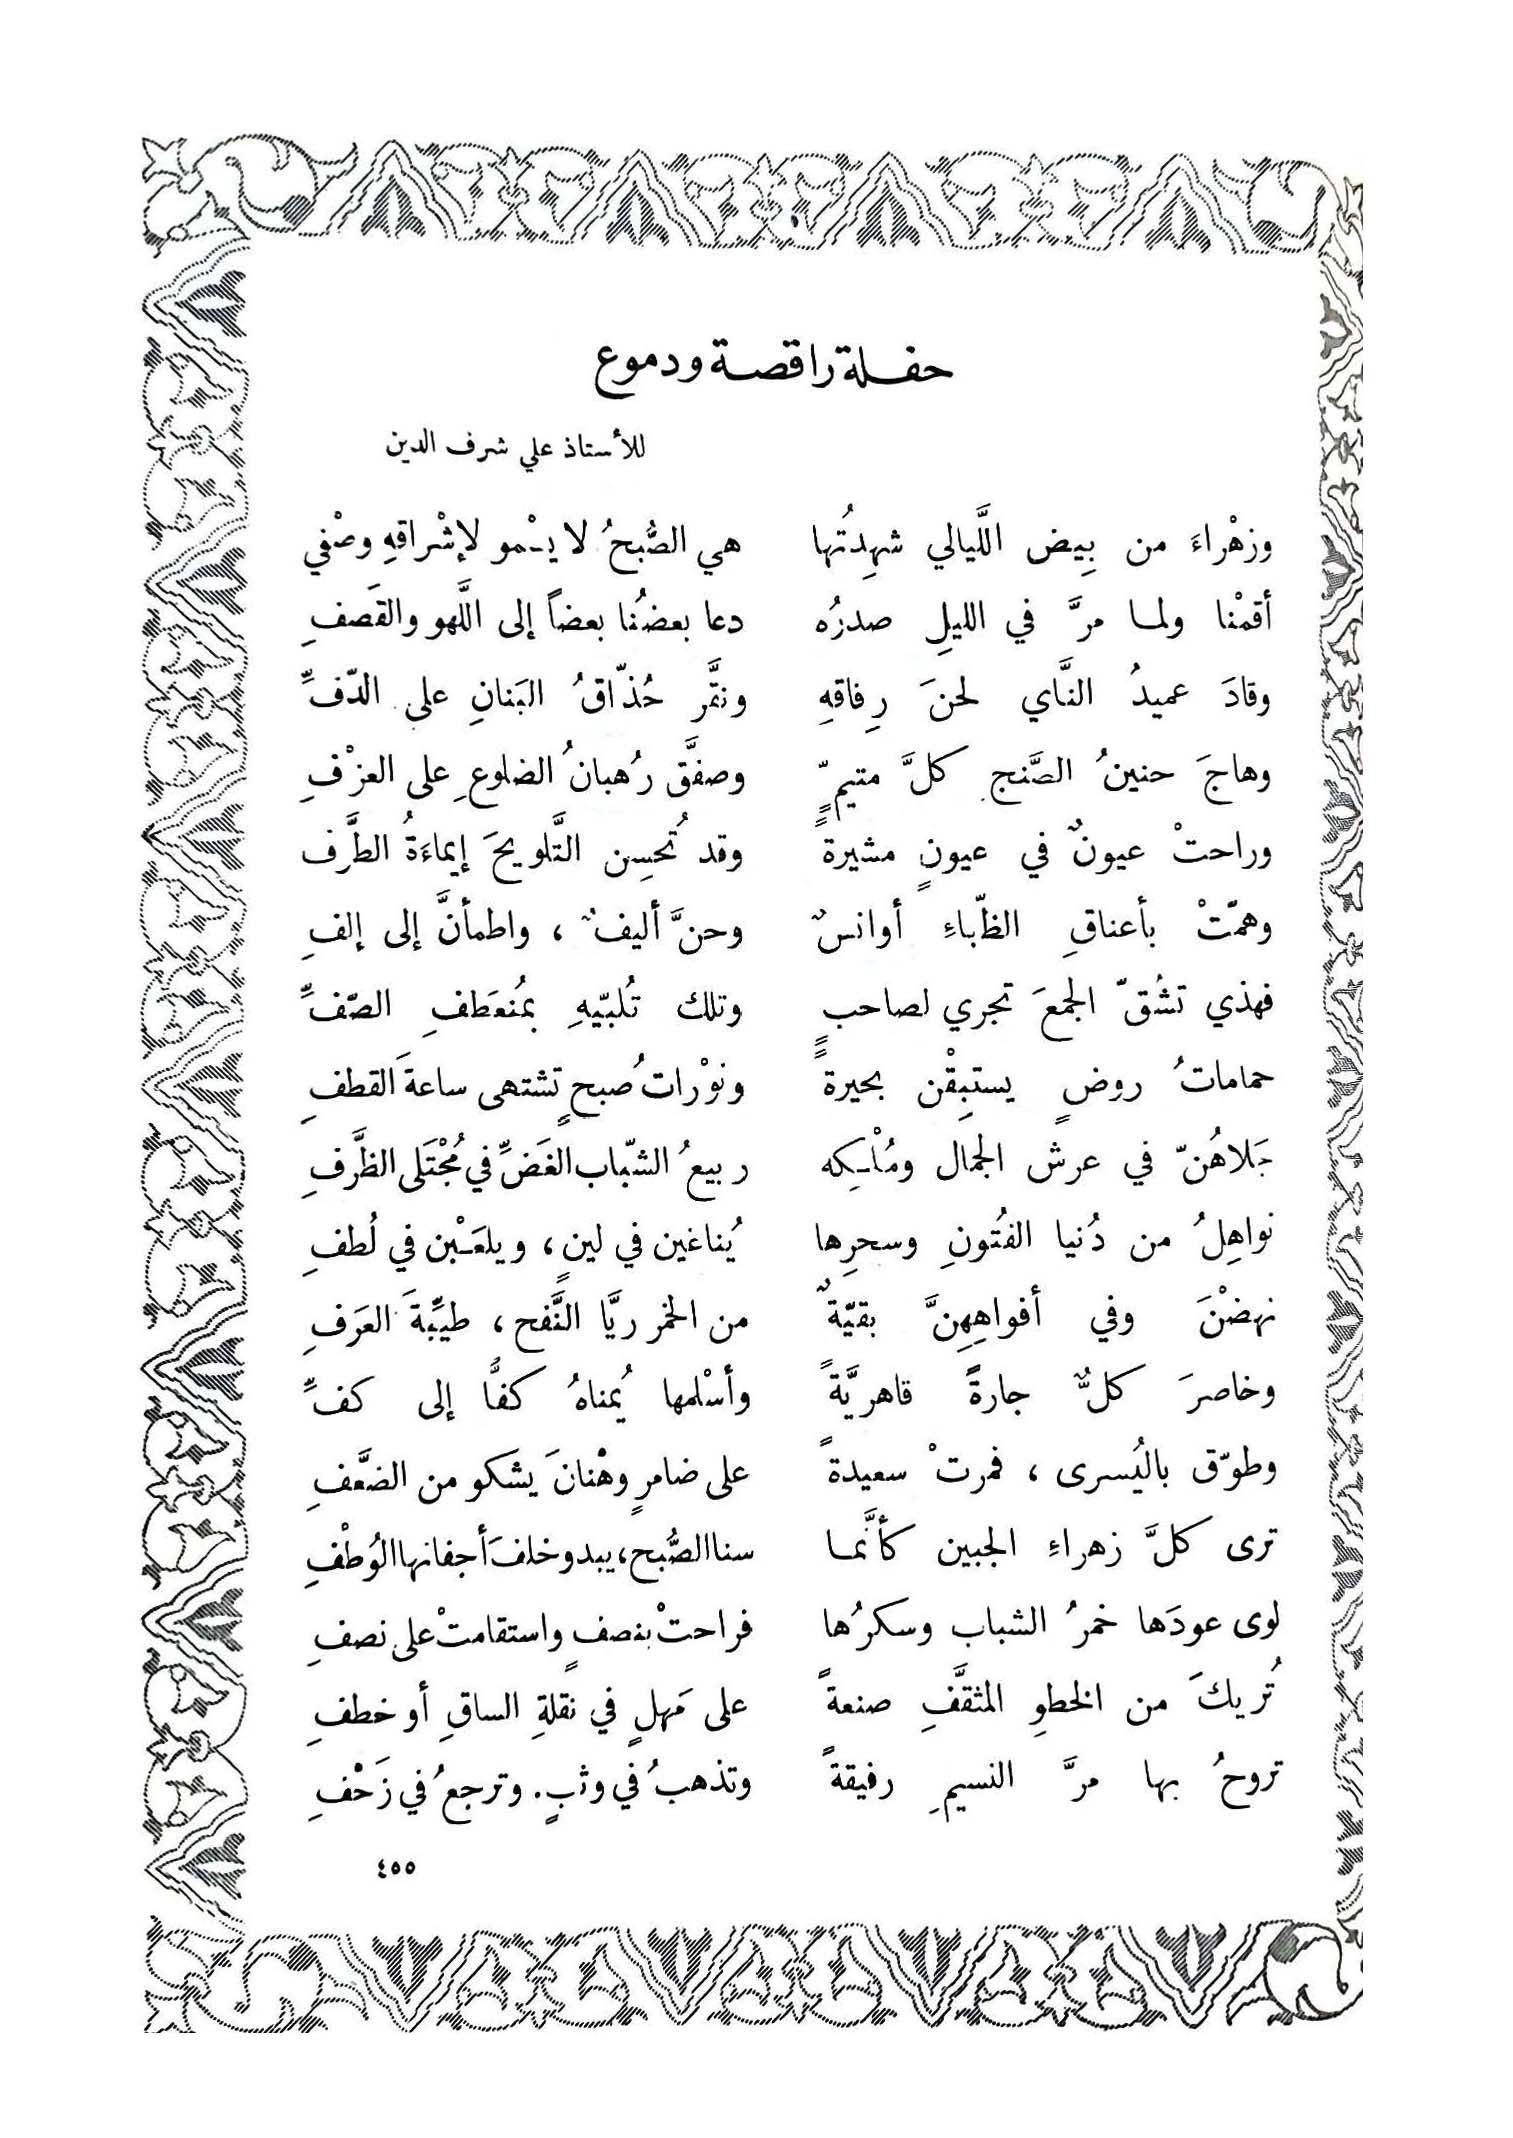 حفلة راقصة ودموع
للأستاذ علي شرف الدين
وزهْراءَ من بِيض اللَّيالي شهِدتُها هي الصُّبحُ لا يسْمو لإشْراقهِ وصْفي
أقمْنا ولما مرَّ في الليلِ صدرُه دعا بعضُنا بعضاً إلى اللَّهو والقَصفِ
وقادَ عميدُ النَّاي لحنَ رِفاقهِ ونقَّر حُذّاقُ البَنانِ على الدّفِّ
وهاجَ حنينُ الصَّنج كلَّ متيمٍّ وصفَّق رُهبانُ الضلوعِ على العزْفِ
وراحتْ عيونٌ في عيونٍ مشيرةٍ وقد تُحسِن التَّلويحَ إيماءَةُ الطَّرف
وهمّتْ بأعناقِ الظّباءِ أوانسٌ وحنَّ أليفٌ ، واطمأنَّ إلى إلفِ
فهذي تشُقّ الجمعَ تجري لصاحبٍ وتلك تُلبّيهِ بمُنعَطفِ الصّفِّ
حماماتُ روضٍ يستبِقْن بحيرةً ونوْرات صُبحٍ تشتهى ساعةَ القطفِ
جَلاهُنّ في عرش الجمال ومُلْكِه ربيعُ الشّباب الغَضِّ في مُجْتَلى الظَّرفِ
نواهِلُ من دُنيا الفُتونِ وسحرِها يُناغين في لينٍ ، ويلعَبْن في لُطفِ
نهضْنَ وفي أفواهِهِنَّ بقيّةٌ من الخمر ريَّا النَّفح ، طيِّبةَ العَرفِ
وخاصرَ كلٌّ جارةً قاهريَّةً وأسْلمها يُمناهُ كفًّا إلى كفِّ
وطوّق باليُسرى ، فمرتْ سعيدةً على ضامرٍ وهْنانَ يشكو من الضعَّفِ
ترى كلَّ زهراءِ الجبين كأنَّما سنا الصُّبح ، يبدو خلفَ أجفانها الوُطْفِ
لوى عودَها خمرُ الشباب وسكرُها فراحتْ بنصفٍ واستقامتْ على نصفِ
تُريكَ من الخطوِ المثقَّفِ صنعةً على مَهلٍ في نقلةِ الساقِ أو خطفِ
تروحُ بها مرَّ النسيمِ رفيقةً وتذهبُ في وثبٍ . وترجعُ في زَحْفِ
٤٥٥